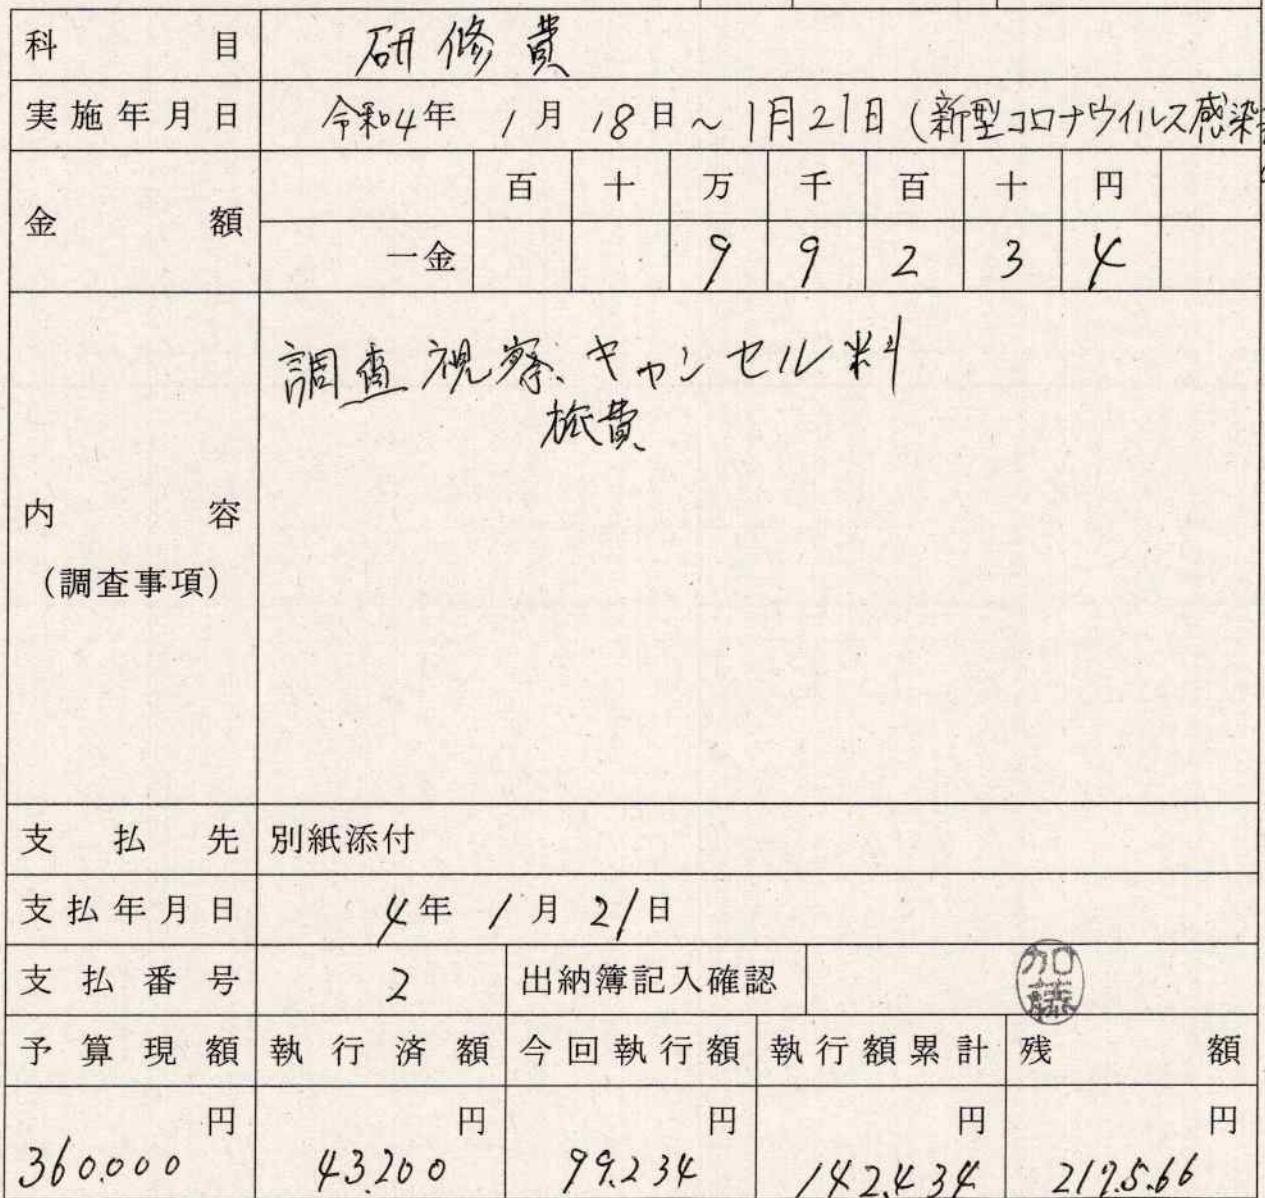 科目 研修費
実施年月日 令和4年 1月 18日～1月21日(新型コロナウイルス感染
金額 百 十 万 千 百 十 円
一金 9 9 2 3 4
調査視察、キャンセル料
旅費
内容
(調査事項)
支払先 別紙添付
支払年月日 4年 1月 21日
支払番号 2 出納簿記入確認 加藤
予算現額 執行済額 今回執行額 執行額累計 残額
円 円 円 円 円
360.000 43.200 99.234 142.434 217.5.66